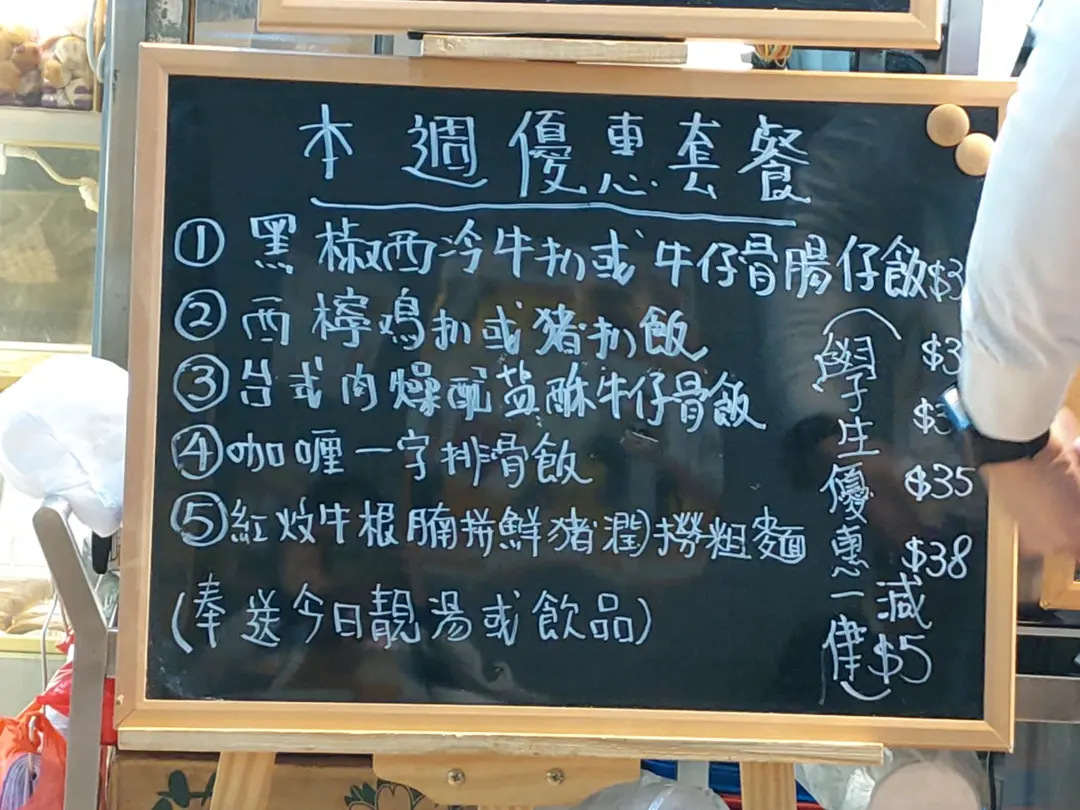 本週優惠套餐
①黑椒西冷牛扒或牛仔骨腸仔飯$3
②西檸鸡扒或豬扒飯 $3
③台式肉燥配盐酥牛仔骨飯 $3
④咖喱一字排骨飯 $35
⑤紅炆牛根腩拼鮮豬潤撈粗麵 $38
(奉送今日靚湯或飲品)
(學生優惠一律減$5)